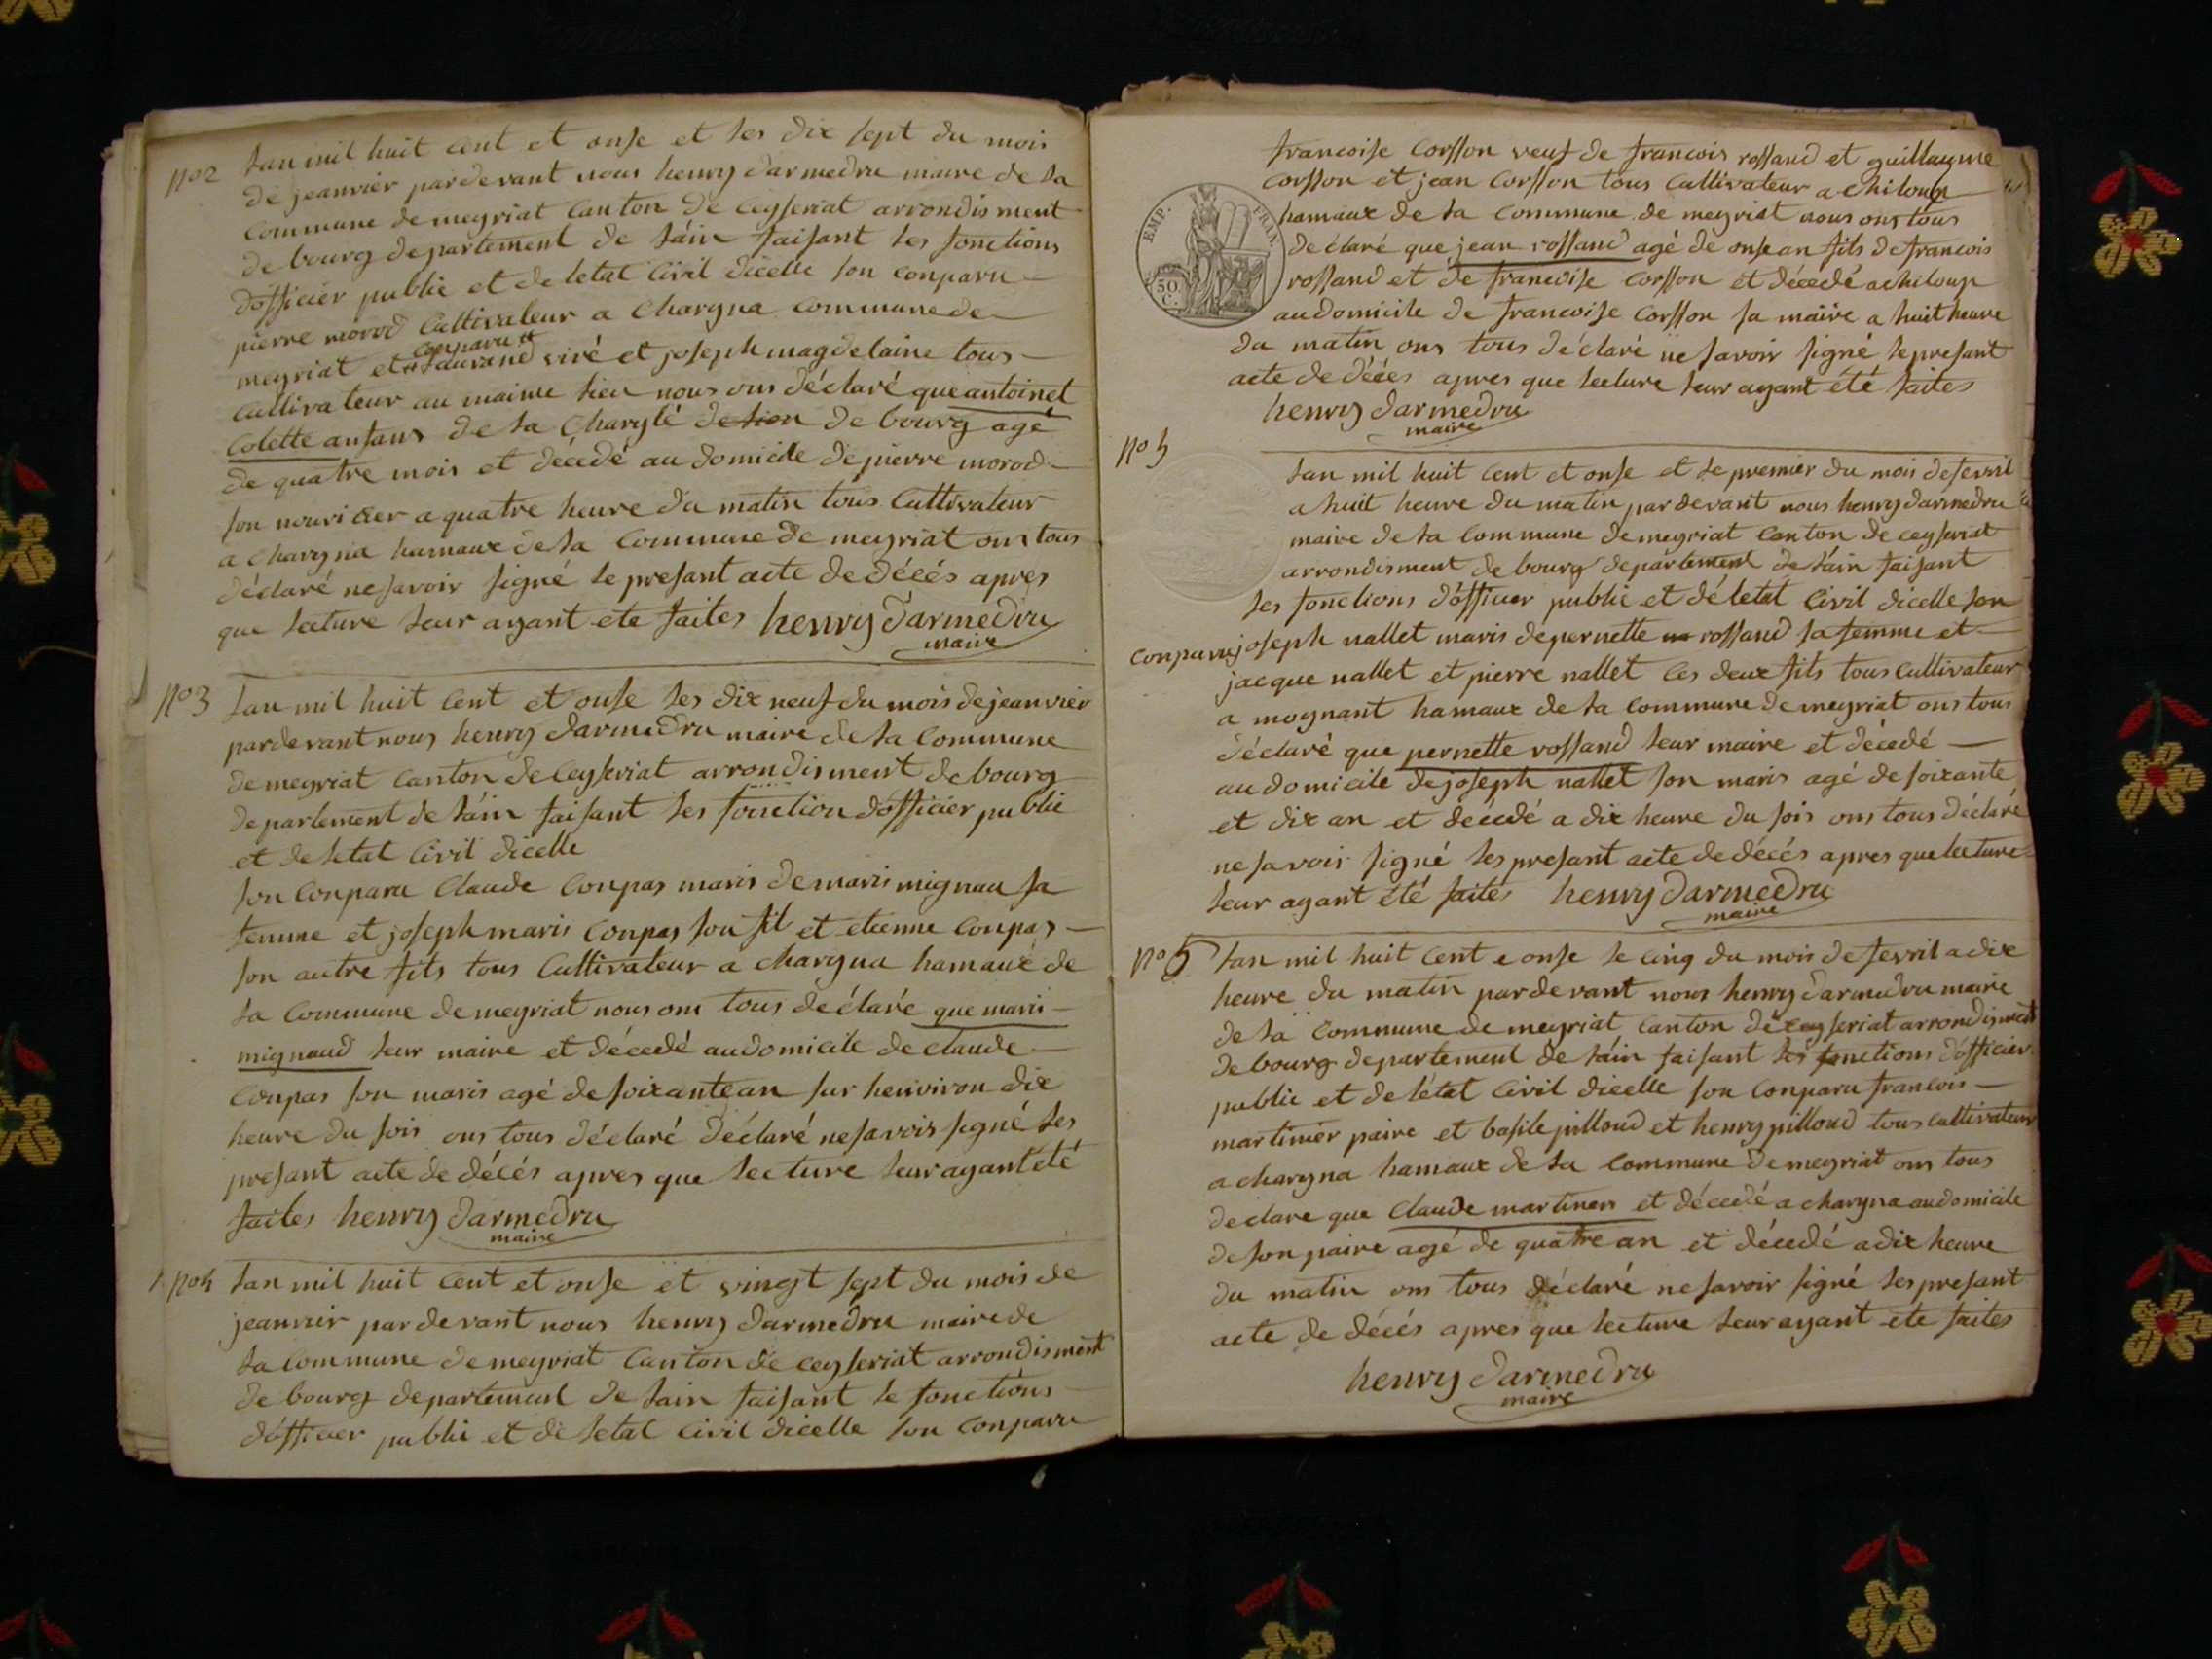 no 2
lan mil huit cent et onse et les dix sept du mois
de jeanvier pardevant nous henry darmedru maire de la
commune de meyriat canton de ceyseriat arrondisment
de bourg departement de láin faisant les fonctions
dofficier public et de letat civil dicelle son conparu
pierre morod cultivateur a Charyna commune de
conparu
meyriat et laurand viré et joseph magdelaine tous
cultivateur au maime lieu nous ons déclaré que antoinet
Colette anfans de la Charyté de lion de bourg agé
de quatre mois et décedé au domicile de pierre morod
son nouricier a quatre heure du matin tous Cultivateur
a charyna hamaux de la Commune de meyriat ons tous
déclaré ne savoir signé le presant acte de décés apres
que lecture leur ayant ete faites henry darmedru
maire
no 3
lan mil huit Cent et onse les dix neuf du mois de jeanvier
pardevant nous henry darmedru maire de la Commune
de meyriat Canton de Ceyseriat arrondisment de bourg
departement de láin faisant les fonction dofficier public
et de letat Civil dicelle
son Conparu Claude Conpas maris de maris mignau sa
femme et joseph maris Conpas son fil et etienne Conpas
son autre fils tous Cultivateur a charyna hamaux de
la Commune de meyriat nous ons tous declaré que maris
mignaud leur maire et décedé au domicile de claude
Conpas son maris agé de soixante an sur henviron dix
heure du sois ons tous déclaré déclaré ne savois signé les
presant acte de décés apres que lecture leur ayant été
faites henry darmedru
maire
no 4
lan mil huit Cent et onse et vingt sept du mois de
jeanvier pardevant nous henry darmedru maire de
la Commune de meyriat Canton de ceyseriat arrondisment
de bourg departement de lain faisant le fonctions
dofficer publi et de letat Civil dicelle son Conparu
francoise Corsson veuf de francois rossand et guillaume
Corsson et jean Corsson tous Cultivateur a chiloup
hamaux de la Commune de meyriat nous ons tous
declaré que jean rossand agé de onse an fils de francois
rossand et de francoise Corsson et décedé a chiloup
au domicile de francoise Corsson sa maire a huit heure
du matin ons tous déclaré ne savoir signé le presant
acte de décés apres que lecture leur ayant été faites
henry darmedru
maire
EMP. FRAN.
50
C.
no 5
lan mil huit Cent et onse et le premier du mois de fevril
a huit heure du matin pardevant nous henry darmedru
maire de la Commune de meyriat Canton de ceyseriat
arrondisment de bourg departement de láin faisant
les fonctions dofficer public et de letat Civil dicelle son
conparu joseph nallet maris de pernette rossand sa femme et
jacque nallet et pierre nallet ces deux fils tous cultivateur
a moynant hamaux de la Commune de meyriat ons tous
déclaré que pernette rossand leur maire et décedé
au domicile de joseph nallet son maris agé de soixante
et dix an et décedé a dix heure du sois ons tous déclaré
ne savois signé les presant acte de décés apres que lecture
leur ayant été faites henry darmedru
maire
no 6
lan mil huit Cent e onse le cinq du mois de fevril a dix
heure du matin pardevant nous henry darmedru maire
de la Commune de meyriat Canton de ceyseriat arrondisment
de bourg departement de láin faisant les fonctions dofficier
public et de létat Civil dicelle son Conparu francois
martinier paire et basile pilloud et henry pilloud tous cultivateur
a charyna hamaux de la Commune de meyriat ons tous
declare que Claude martiners et décedé a charyna au domicile
de son paire agé de quatre an et décedé a dix heure
du matin ons tous déclaré ne savoir signé les presant
acte de décés apres que lecture leur ayant éte faites
henry darmedru
maire